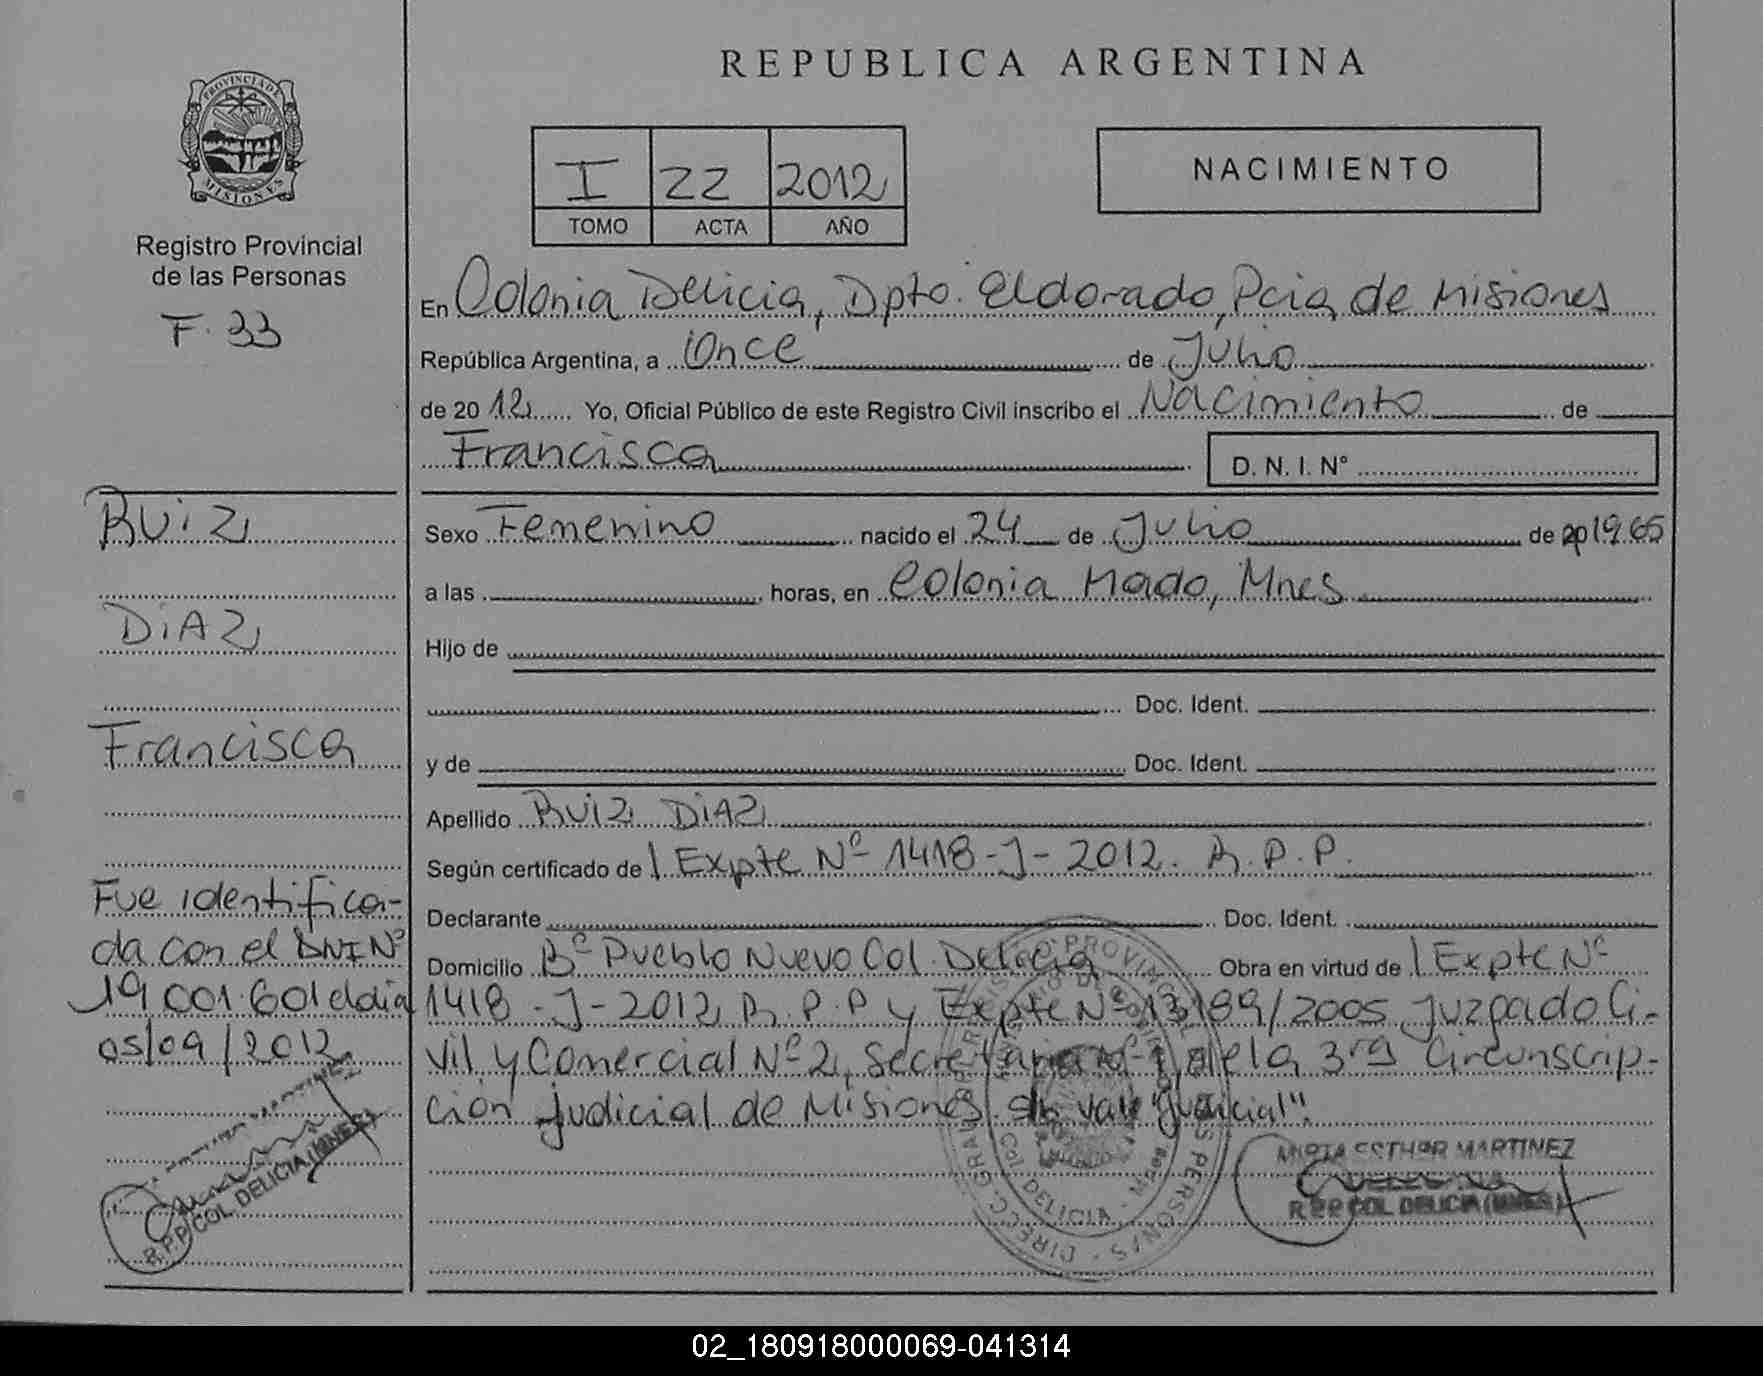 PROVINCIA DE
MISIONES
Registro Provincial
de las Personas
F. 33
REPUBLICA ARGENTINA
I 22 2012
TOMO ACTA AÑO
NACIMIENTO
En Colonia Delicia, Dpto. Eldorado, Pcia de Misiones
República Argentina, a Once de Julio
de 2012 Yo, Oficial Público de este Registro Civil inscribo el Nacimiento de
Francisca
D. N. I. Nº
Sexo Femenino nacido el 24 de Julio de 1965
a las horas, en Colonia Mado, Mnes
Hijo de
Doc. Ident.
y de Doc. Ident.
Apellido RUIZ DIAZ
Según certificado de | Expte Nº 1418-J-2012. R.P.P.
Declarante Doc. Ident.
Domicilio Bº Pueblo Nuevo Col. Delicia Obra en virtud de | Expte Nº
1418-J-2012 R.P.P y Expte Nº 13189/2005 Juzgado Ci-
vil y Comercial Nº 2, Secretaria Nº 1 de la 3ra Circunscrip-
ción judicial de Misiones. S/r vale "Judicial".
MIRTA ESTHER MARTINEZ
R.P.P COL. DELICIA (MNES)
RUIZ
DIAZ
Francisca
Fue identifica-
da con el DNI Nº
19.001.601 el dia
05/09/2012
R.P.P COL. DELICIA (MNES)
02_180918000069-041314